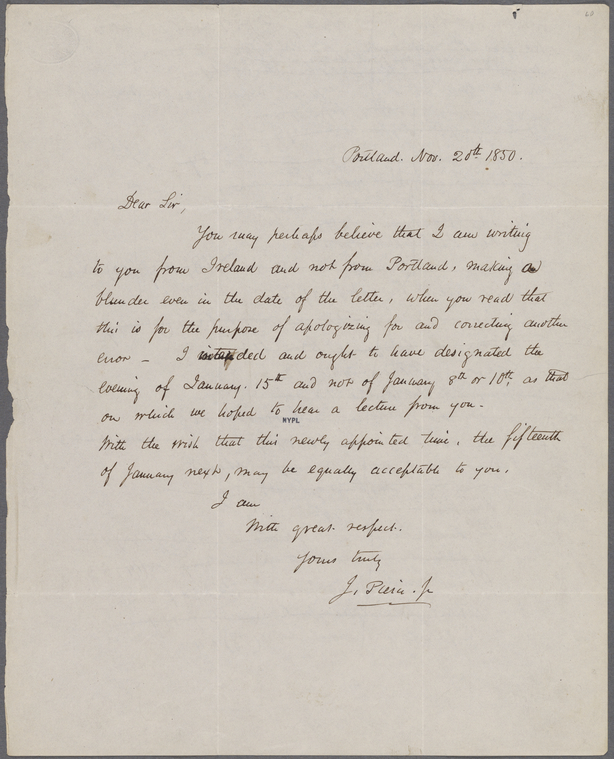 Portland. Nov. 20th 1850.
Dear Sir,
You may perhaps believe that I am writing
to you from Ireland and not from Portland, making a
blunder even in the date of the letter, when you read that
this is for the purpose of apologizing for and correcting another
error - I intended and ought to have designated the
evening of January. 15th and not of January 8th or 10th, as that
on which we hoped to hear a lecture from you -
NYPL
With the wish that this newly appointed time, the fifteenth
of January next, may be equally acceptable to you,
I am
With great respect.
Yours truly
J. Pierce. Jr